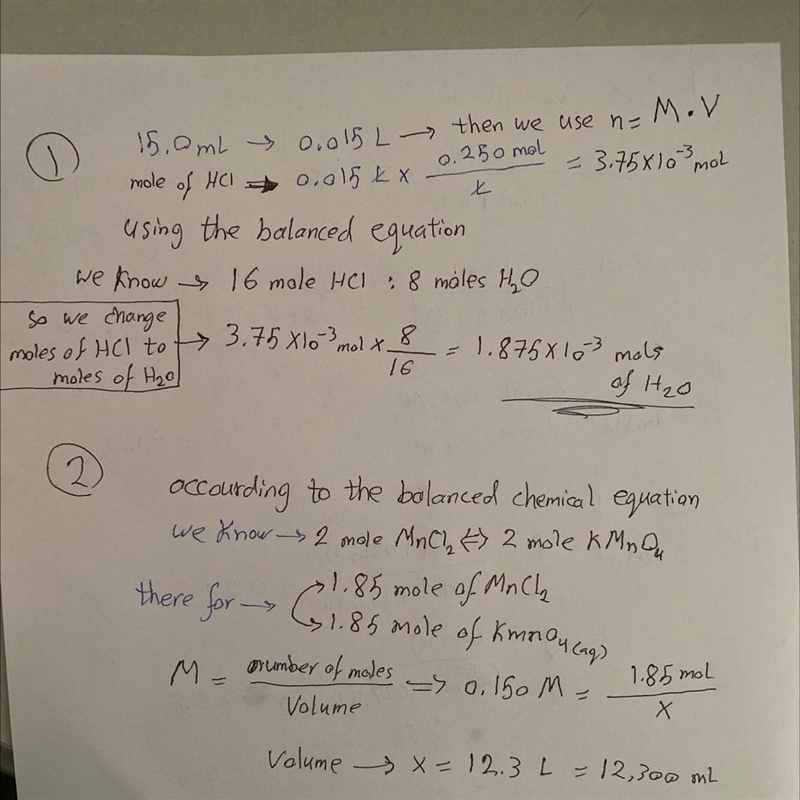 1
15.0 mL → 0.015 L → then we use n = M · V
mole of HCl → 0.015 L × 0.250 mol / L = 3.75 × 10⁻³ mol
using the balanced equation
we know → 16 mole HCl : 8 moles H₂O
So we change moles of HCl to moles of H₂O → 3.75 × 10⁻³ mol × 8/16 = 1.875 × 10⁻³ mols of H₂O
2
accourding to the balanced chemical equation
we know → 2 mole MnCl₂ ⇔ 2 mole KMnO₄
there for → 1.85 mole of MnCl₂
1.85 mole of KmnO₄(aq)
M = number of moles / Volume ⇒ 0.150 M = 1.85 mol / X
Volume → X = 12.3 L = 12,300 mL